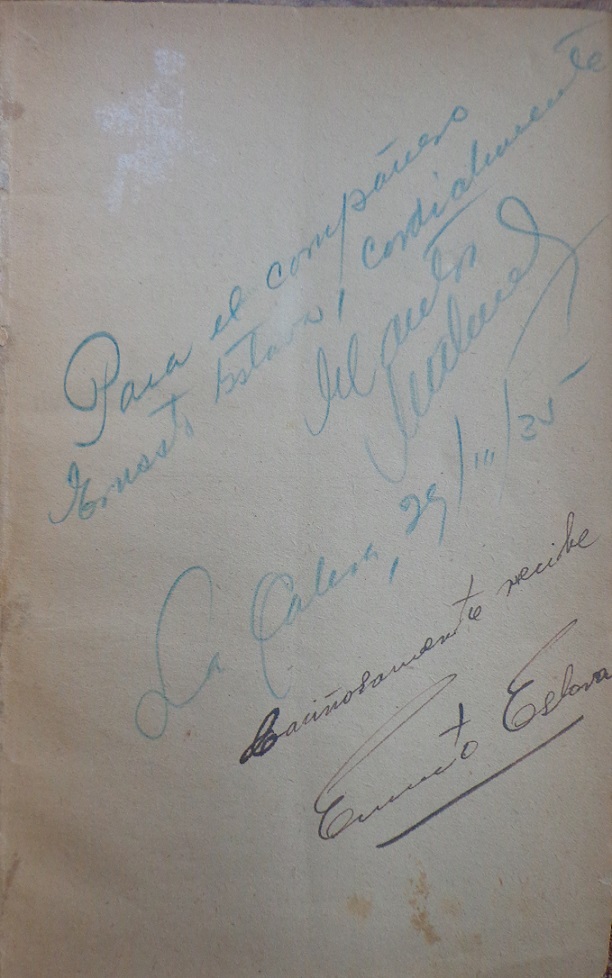 Para el compañero
Ernesto Eslava, cordialmente
del autor
La Calera, 29/III/35
Cariñosamente recibe
Ernesto Eslava